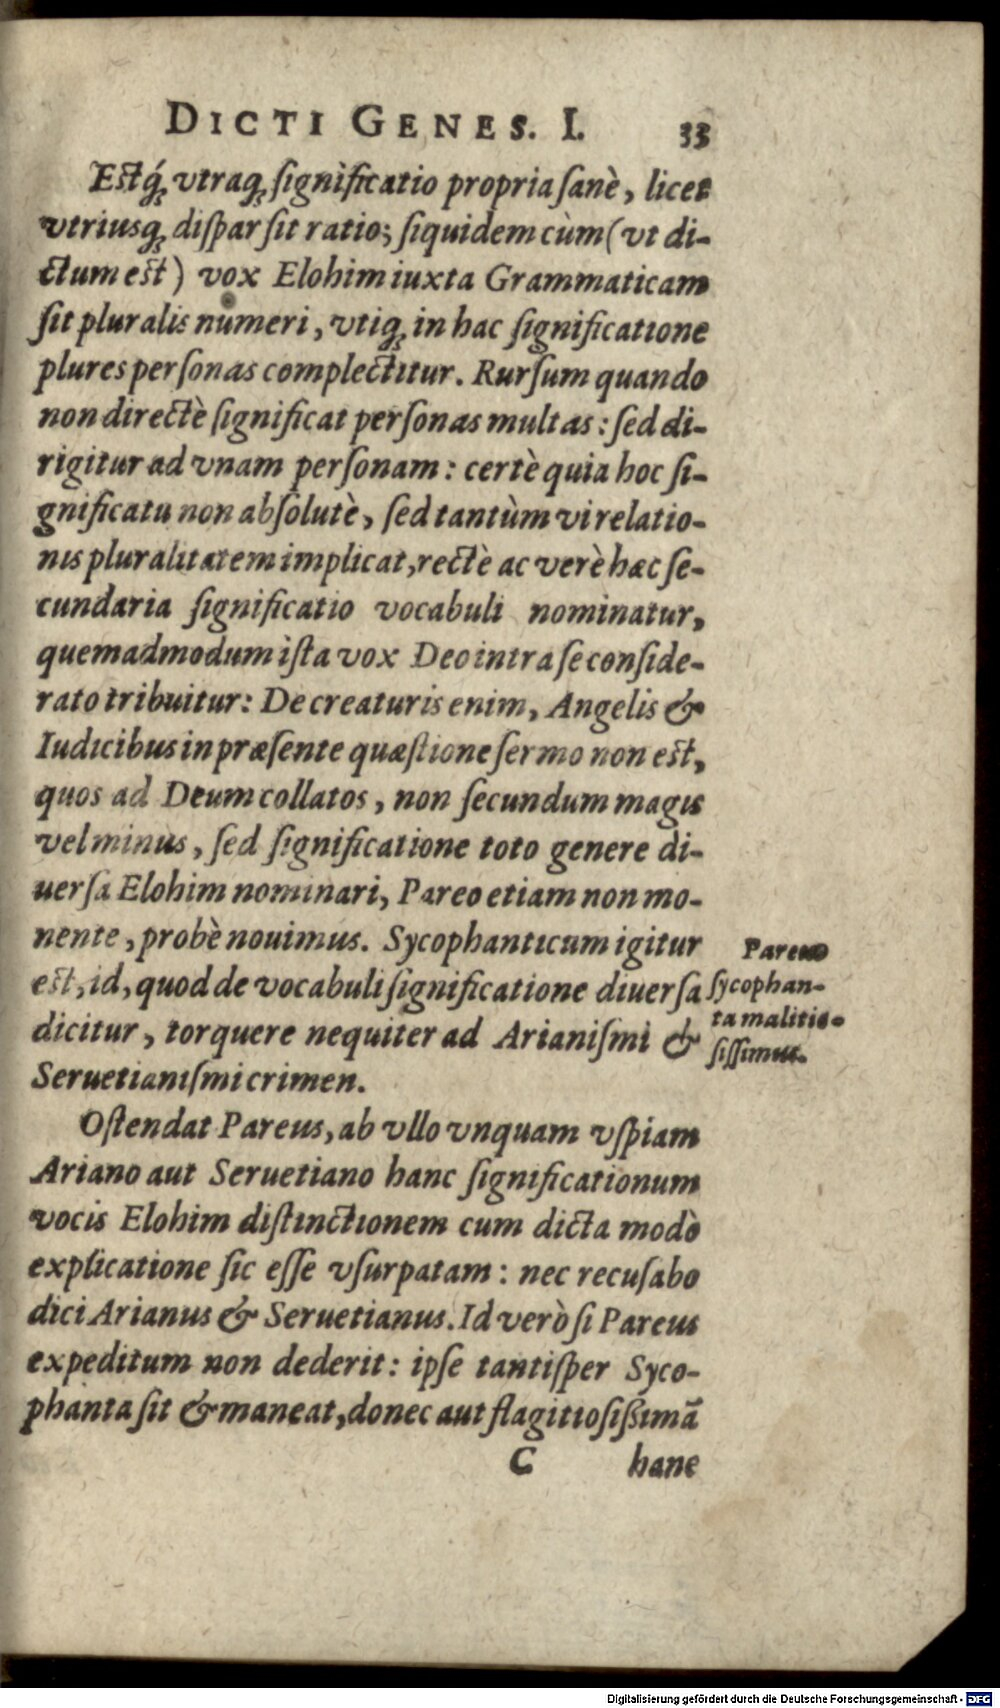 DICTI GENES. I. 33
Estq́; vtraq; significatio propria sanè, licet
vtriusq; dispar sit ratio; siquidem cùm (vt di-
ctum est) vox Elohim iuxta Grammaticam
sit pluralis numeri, vtiq; in hac significatione
plures personas complectitur. Rursum quando
non directè significat personas multas: sed di-
rigitur ad vnam personam: certè quia hoc si-
gnificatu non absolutè, sed tantùm vi relatio-
nis pluralitatem implicat, rectè ac verè hæc se-
cundaria significatio vocabuli nominatur,
quemadmodum ista vox Deo intra se conside-
rato tribuitur: De creaturis enim, Angelis &
Iudicibus in præsente quæstione sermo non est,
quos ad Deum collatos, non secundum magis
vel minus, sed significatione toto genere di-
uersa Elohim nominari, Pareo etiam non mo-
nente, probè nouimus. Sycophanticum igitur
est, id, quod de vocabuli significatione diuersa
dicitur, torquere nequiter ad Arianismi &
Seruetianismi crimen.
Pareus
sycophan-
ta malitio-
sissimus.
Ostendat Pareus, ab vllo vnquam vspiam
Ariano aut Seruetiano hanc significationum
vocis Elohim distinctionem cum dicta modò
explicatione sic esse vsurpatam: nec recusabo
dici Arianus & Seruetianus. Id verò si Pareus
expeditum non dederit: ipse tantisper Syco-
phanta sit & maneat, donec aut flagitiosissimā
C hanc
Digitalisierung gefördert durch die Deutsche Forschungsgemeinschaft - DFG